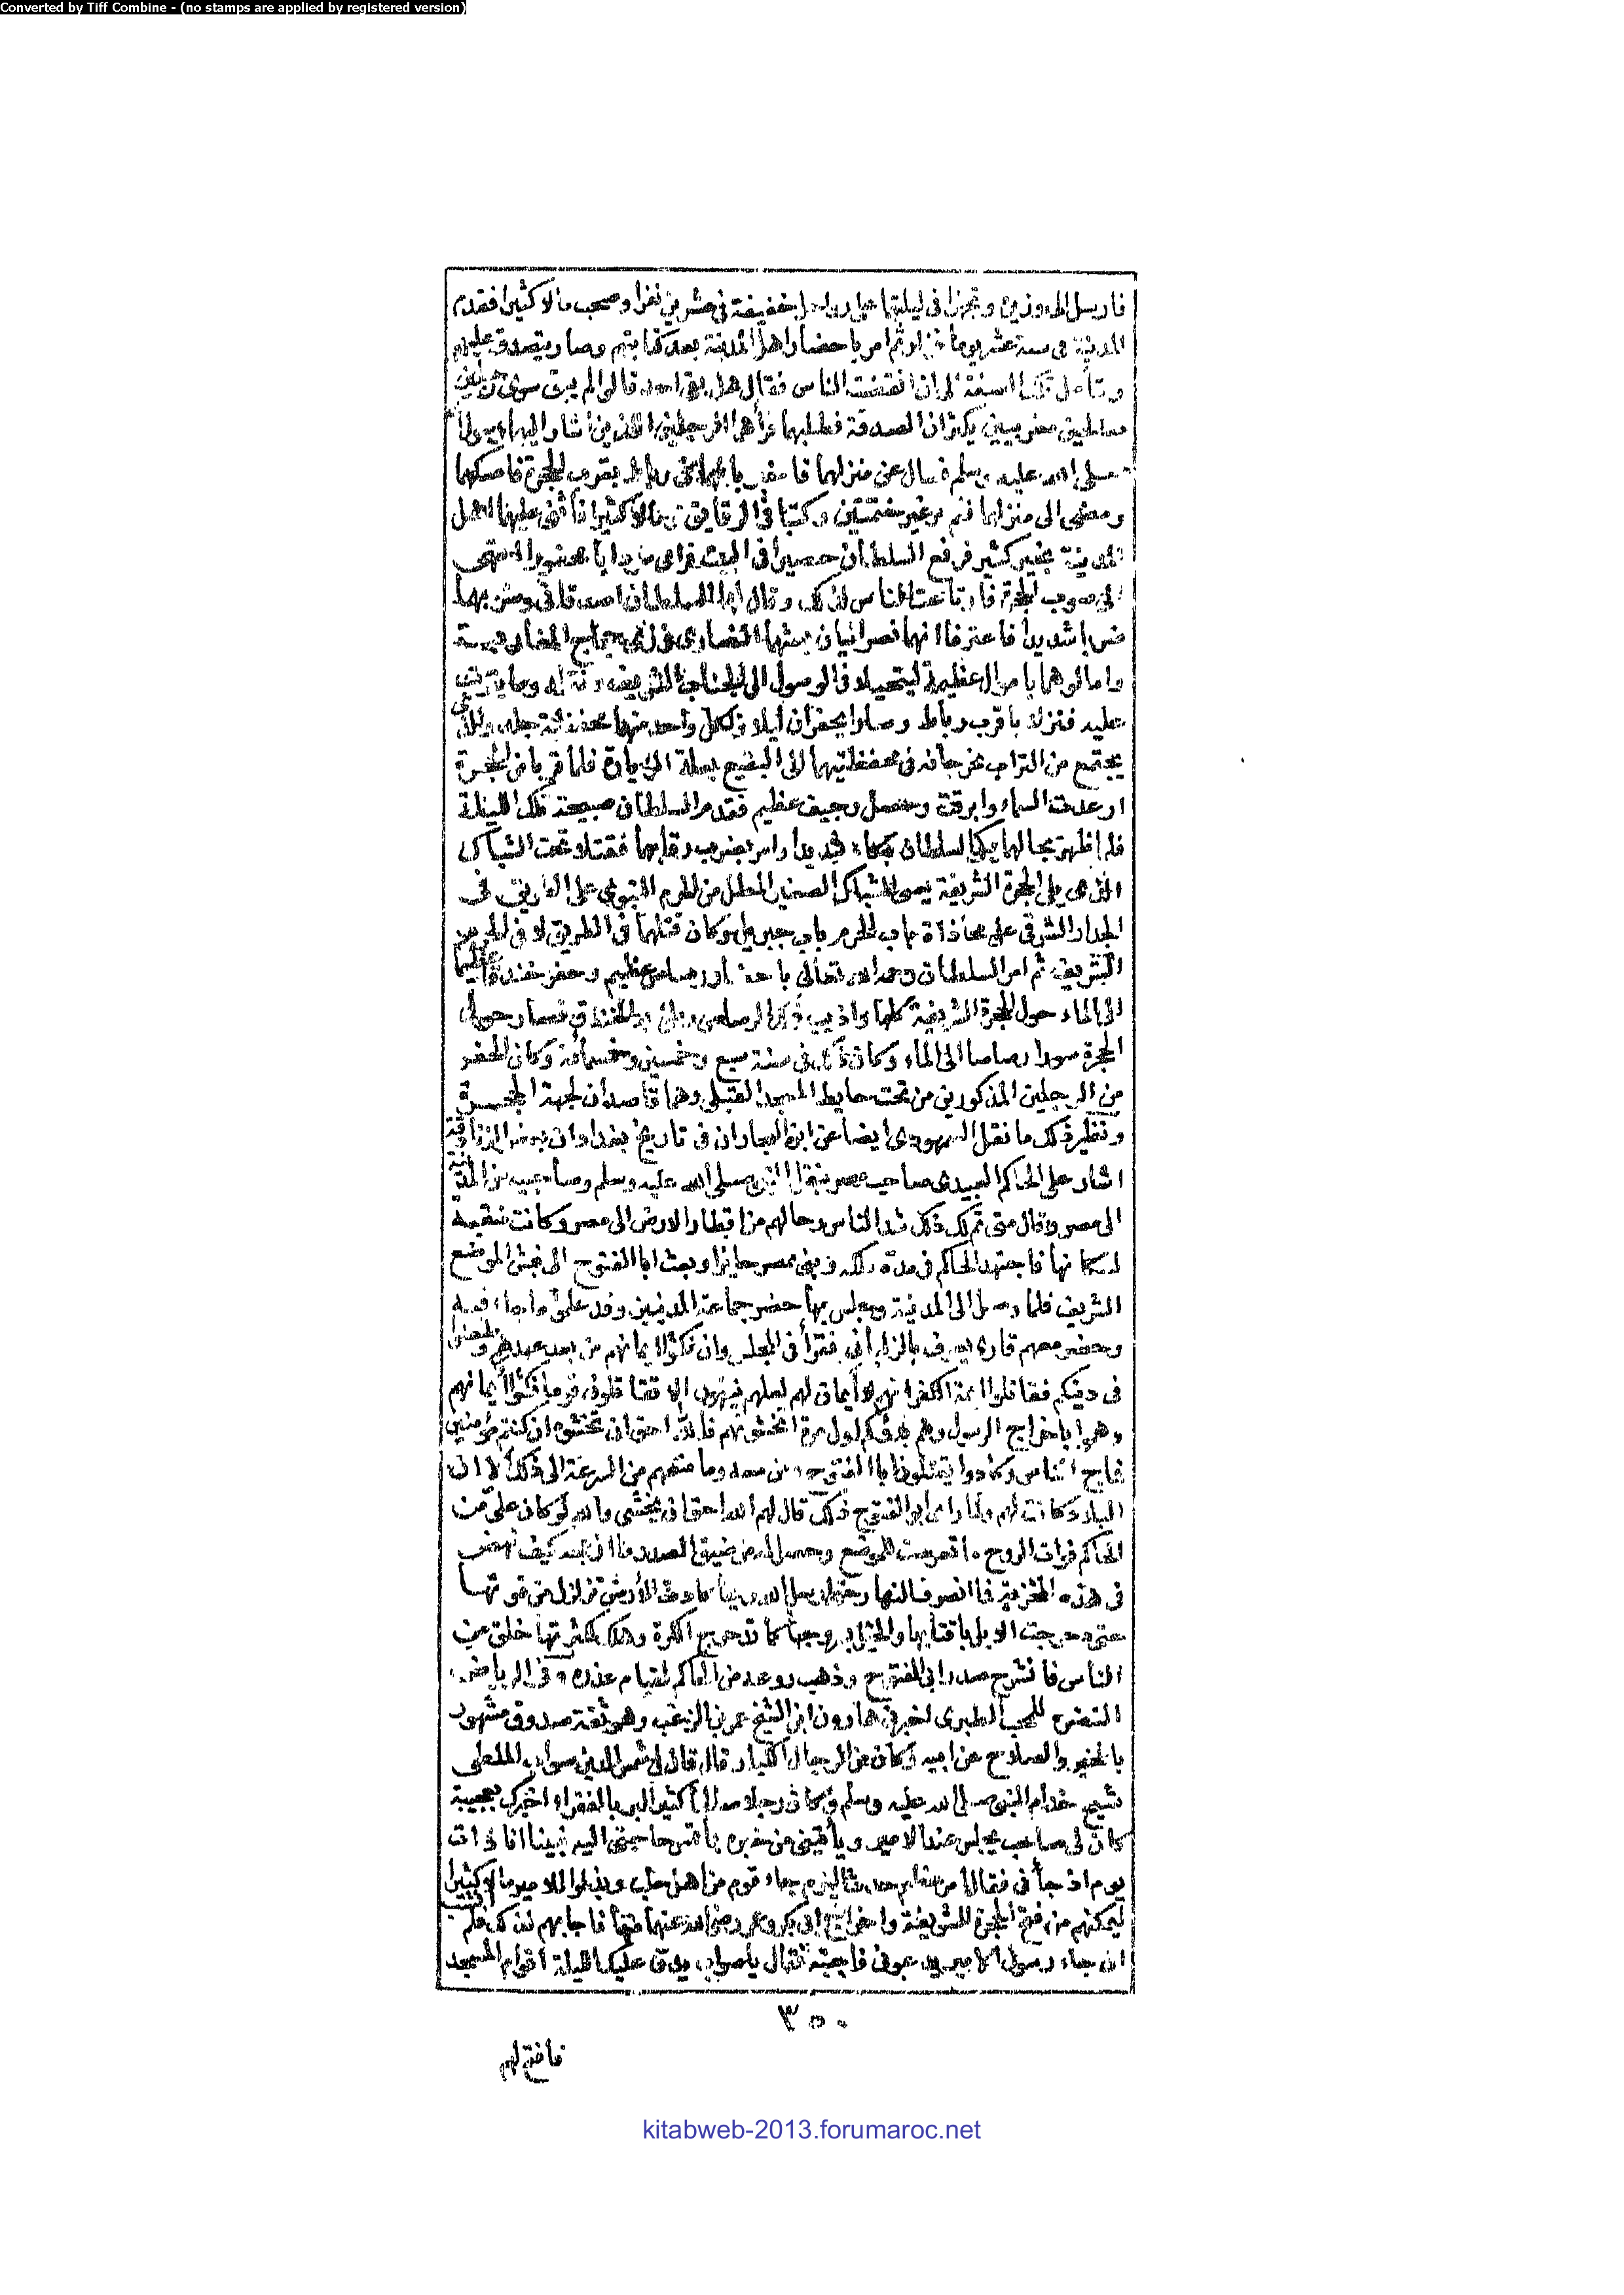 Converted by Tiff Combine - (no stamps are applied by registered version)
فارسل الى وزيره وتجهزا فى ليلتهما على رواحل خفيفة فى عشرين نفرا وصحب مالا كثيرا فقدم
المدينة فى ستة عشر يوما فزار ثم امر باحضار اهل المدينة بعد كتابتهم وصار يتصدق عليهم
ويتأمل تلك الصفة الى ان انفضت الناس فقال هل بقى احد قالوا لم يبق سوى رجلين
صالحين مغربيين يكثران الصدقة فطلبهما فرأهما الرجلين اللذين اشار اليهما رسول الله
صلى الله عليه وسلم فسال عن منزلهما فاخبر بانهما فى رباط بقرب الحجرة فامسكهما
ومضى الى منزلهما فلم ير غير ختمتين وكتبا فى الرقايق ومالا كثيرا فأثنى عليهما اهل
المدينة بخير كثير فرفع السلطان حصيرا فى البيت فراى سردابا محفورا انتهى
الى صوب الحجرة فارتاعت الناس لذلك وقال لهما السلطان اصدقانى وضربهما
ضربا شديدا فاعترفا انهما نصرانيان بعثهما النصارى فى زى حجاج المغاربة
وامالوهما باموال عظيمة ليتحيلا فى الوصول الى الجناب الشريف ونقله وما يترتب
عليه فنزلا باقرب رباط وصارا يحفران ليلا ولكل واحد منهما محفظة جلد والذى
يجتمع من التراب يخرجانه فى محفظتيهما الى البقيع بعلة الزيارة فلما قربا من الحجرة
ارعدت السماء وابرقت وحصل رجيف عظيم فقدم السلطان صبيحة تلك الليلة
فلما ظهر حالهما بكى السلطان بكاء شديدا وامر بضرب رقابهما فقتلا تحت الشباك
الذى يلى الحجرة الشريفة يسمى الشباك الصغير المطل من الحرم النبوى على الطريق فى
الجدار الشرقى على محاذاة باب الحرم باب جبريل وكان قتلهما فى الطريق لا فى الحرم
الشريف ثم امر السلطان رحمه الله تعالى باحضار رصاص عظيم وحفر خندقا عظيما
الى الماء حول الحجرة الشريفة كلها واذيب ذلك الرصاص وملئ به الخندق فصار حول
الحجرة سورا رصاصا الى الماء وكان ذلك فى سنة سبع وخمسين وخمسمائة وكان الحفر
من الرجلين المذكورين من تحت حايط المسجد القبلى وهما قاصدان لجهة الحجرة
ونظير ذلك ما نقل السمهودى ايضا عن ابن النجار ان فى تاريخ بغداد ان بعض الزنادقة
اشار على الحاكم العبيدى صاحب مصر بنقل النبى صلى الله عليه وسلم وصاحبيه من المدينة
الى مصر وقال متى تم لك ذلك شد الناس رحالهم من اقطار الارض الى مصر وكانت منقبة
لسكانها فاجتهد الحاكم فى مدة وبنى بمصر حايزا وبعث ابا الفتوح الى نبش الموضع
الشريف فلما وصل الى المدينة وجلس بها حضر جماعة المدنيين وقد علموا ما جاء فيه
وحضر معهم قارى يعرف بالزلبانى فقرأ فى المجلس وان نكثوا ايمانهم من بعد عهدهم وطعنوا
فى دينكم فقاتلوا ايمة الكفر انهم لا أيمان لهم لعلهم ينتهون الا تقاتلون قوما نكثوا أيمانهم
وهموا باخراج الرسول وهم بدؤكم اول مرة اتخشونهم فالله احق ان تخشوه ان كنتم مؤمنين
فماج الناس وكادوا يقتلون ابا الفتوح ومن معه وما منعهم من السرعة الى ذلك الا ان
البلاد كانت لهم ولما راى ابو الفتوح ذلك قال لهم الله احق ان يخشى والله لو كان على من
الحاكم فوات الروح ما تعرضت للموضع وحصل له من ضيق الصدر ما ازعجه كيف نهض
فى هذه المخزية فما انصرف النهار حتى ارسل الله ريحا كادت الأرض تزلزل من قوتها
حتى دحرجت الابل باقتابها والخيل بسروجها كما تدحرج الكرة وهلك بكثرتها خلق من
الناس فانشرح صدر ابى الفتوح وذهب روعه من الحاكم لقيام عذره وفى الرياض
النضرة للمحب الطبرى اخبرنى هارون ابن الشيخ عمر بن الزغب وهو ثقة صدوق مشهور
بالخير والصلاح عن ابيه وكان من الرجال الكبار قال قال لى شمس الدين صواب الملطى
شيخ خدام النبى صلى الله عليه وسلم وكان رجلا صالحا كثير البر بالفقراء اخبرك بعجيبة
كان لى صاحب يجلس عند الامير ويأتينى من خبره بامس حاجتى اليه فبينا انا ذات
يوم اذ جأنى فقال امر عظيم حدث اليوم جاء قوم من اهل حلب وبذلوا للامير مالا كثيرا
ليمكنهم من فتح الحجرة الشريفة واخراج ابى بكر وعمر رضى الله عنهما منها فاجابهم لذلك فلم انشب
ان جاء رسول الامير يدعونى فاجبته فقال يا صواب يدق عليك الليلة اقوام المسجد
٣٥٠
فافتح لهم
kitabweb-2013.forumaroc.net